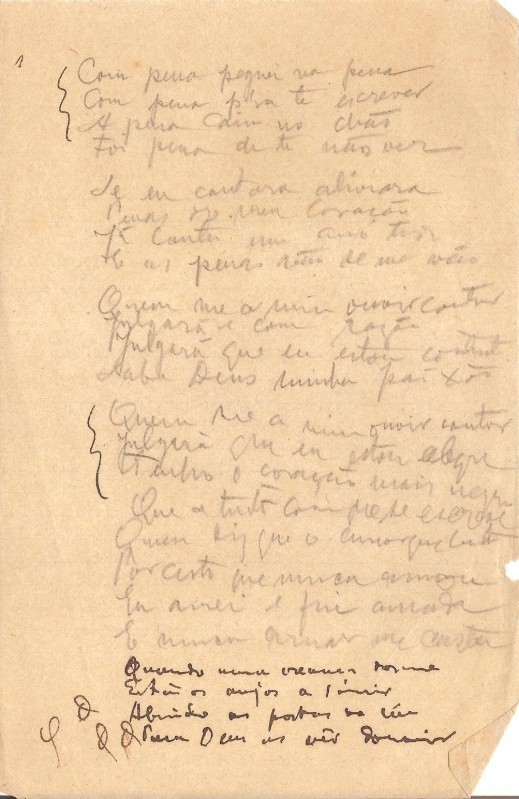 1
Com pena peguei na pena
Com pena p'ra te escrever
A pena caiu no chão
Foi pena de te não ver
Se eu cantara aliviara
Penas do meu coração
Já cantei um ano
E as penas não se me vão
Quem me a mim ouvir cantar
Julgará com razão
Julgará que eu estou
Sabe Deus minha paixão
Quem me a mim ouvir cantar
Julgará que eu estou alegre
Tenho o coração mais negro
Que a tinta com
Quem diz que o amar
Por certo que nunca amou
Eu amei e fui amada
E nunca amar me custou
Quando uma creança dorme
Estão os anjos a
Abrindo as portas do céu
Para Deus as vêr dormir